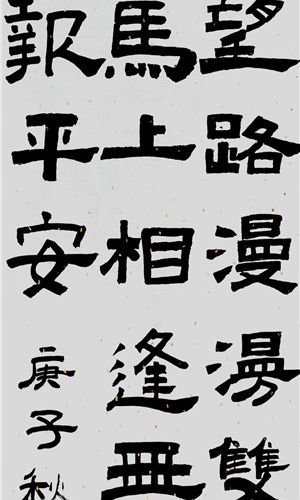 望路漫漫雙
馬上相逢無
報平安
庚子秋